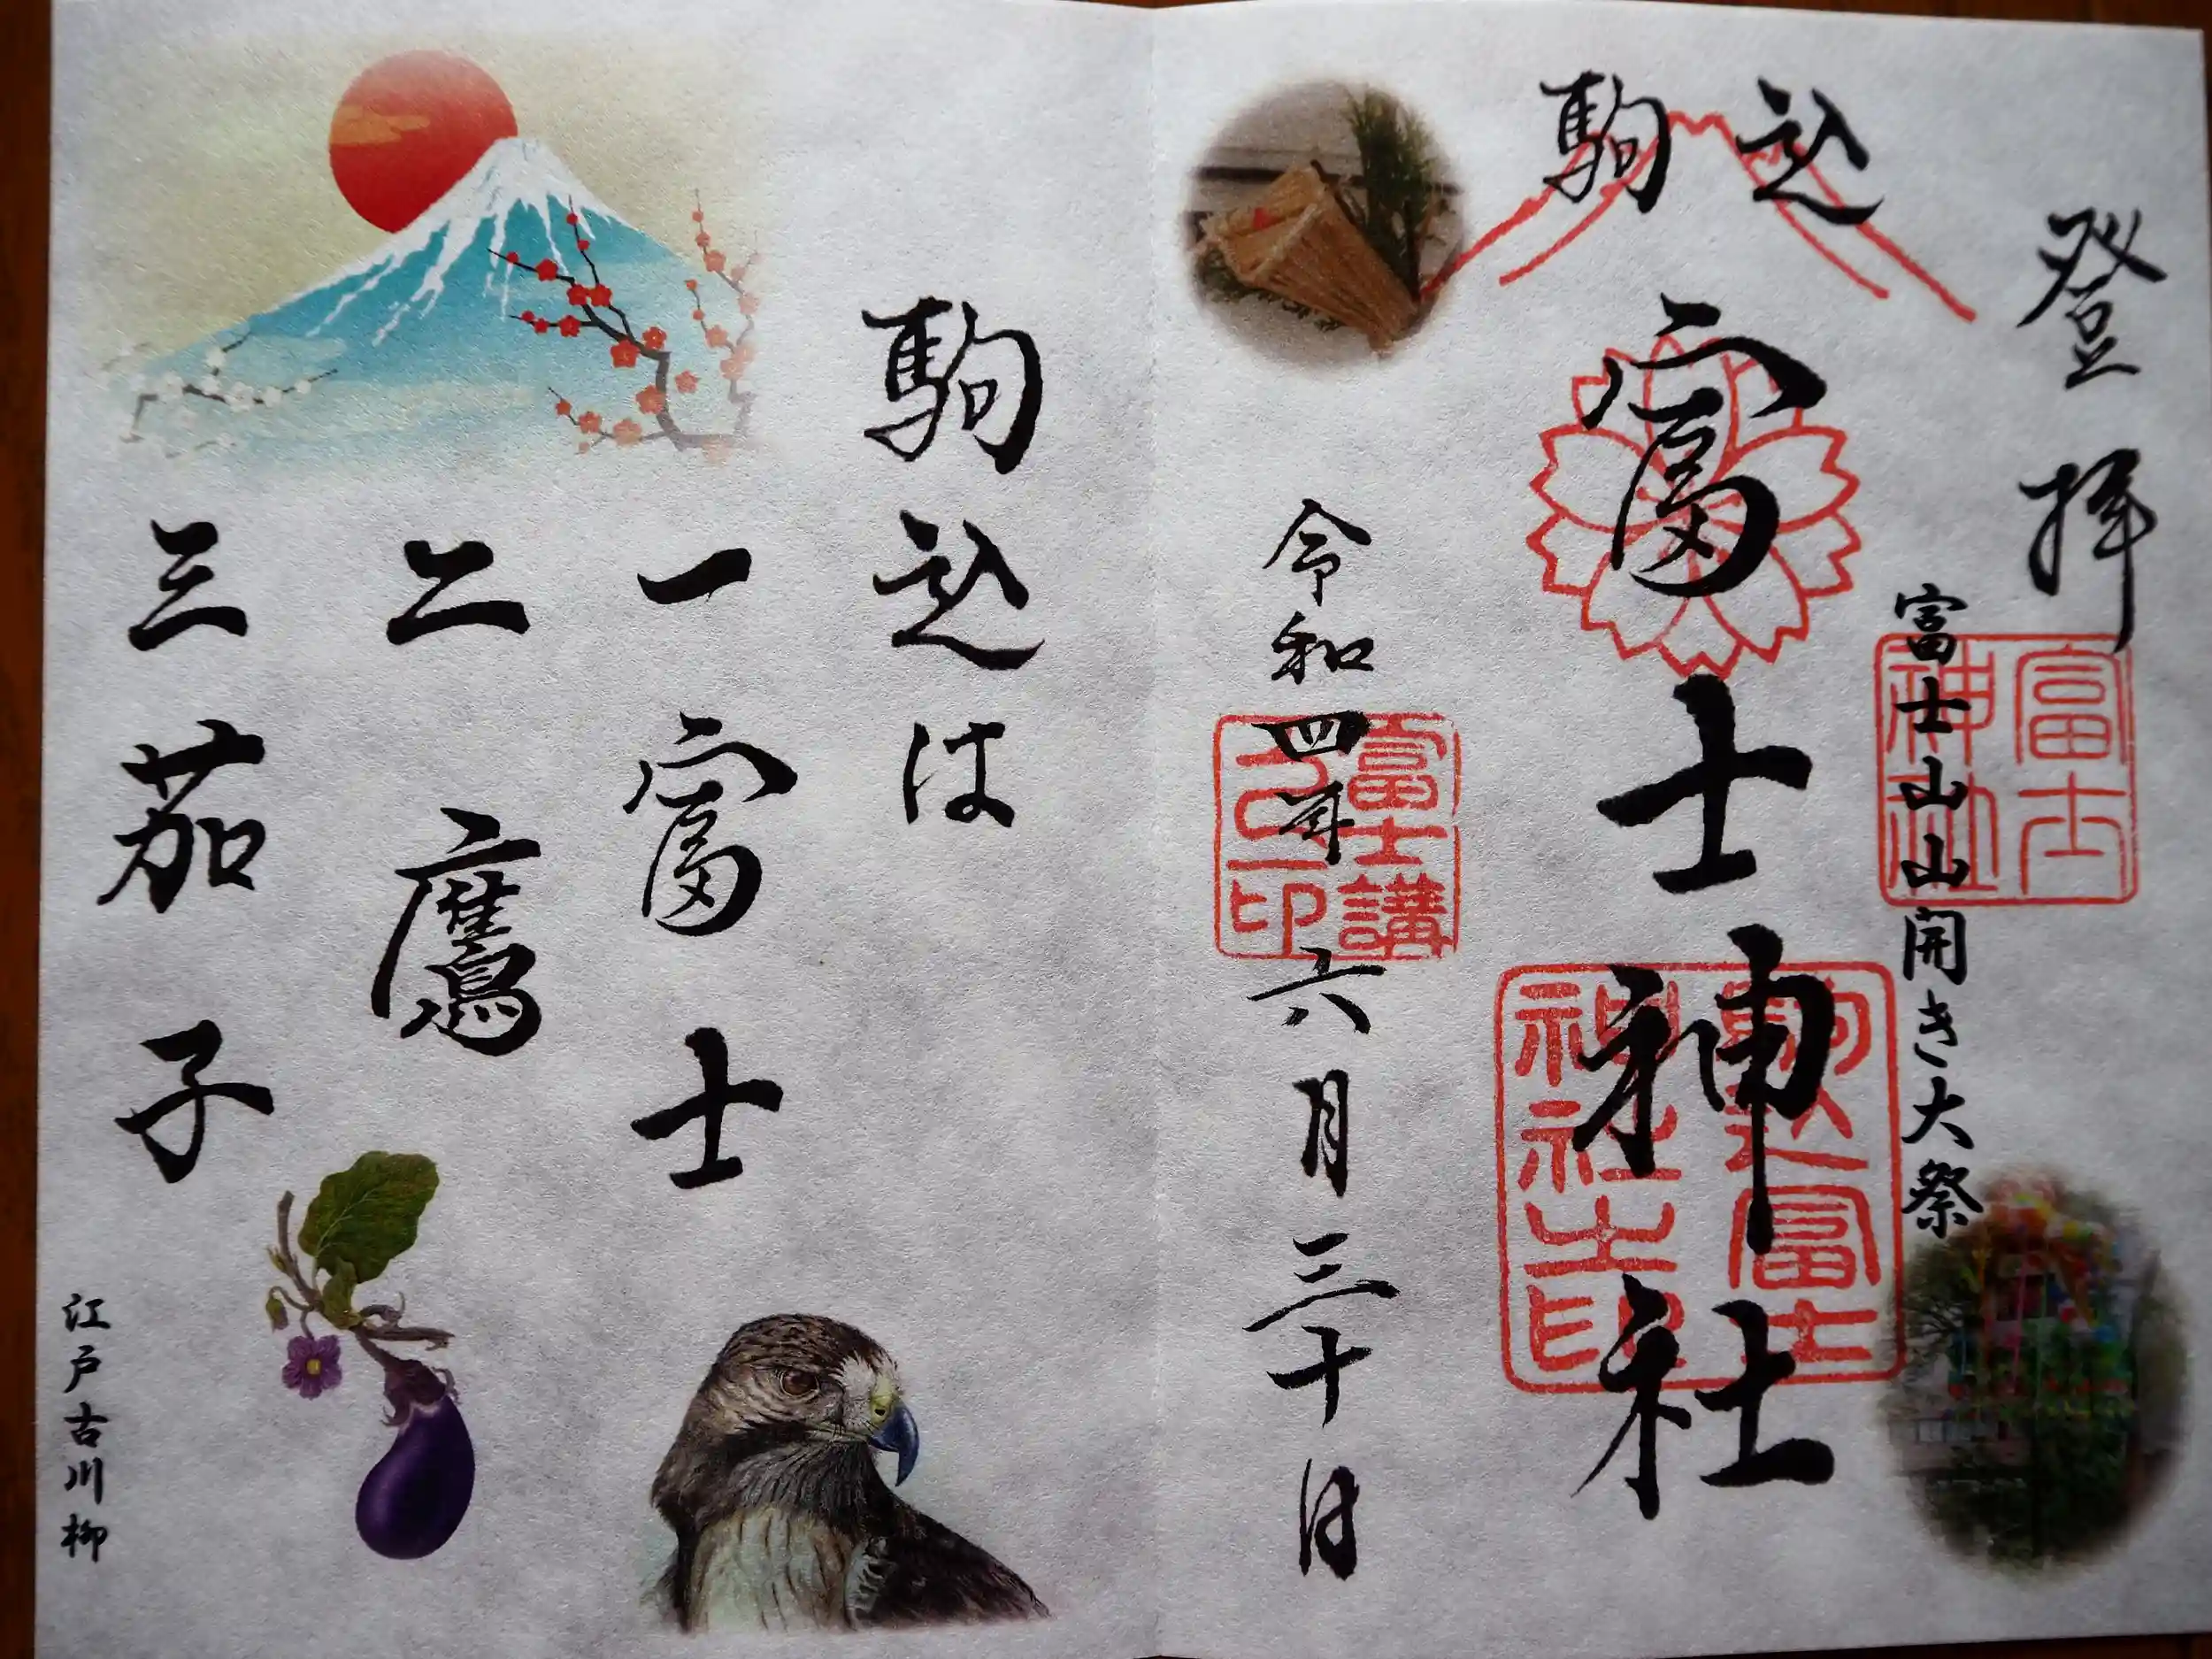 登拝
富士神社
富士山山開き大祭
駒込
富士神社
駒込富士
神社之印
令和四年六月三十日
富士講
之印
駒込は
一富士
二鷹
三茄子
江戸古川柳